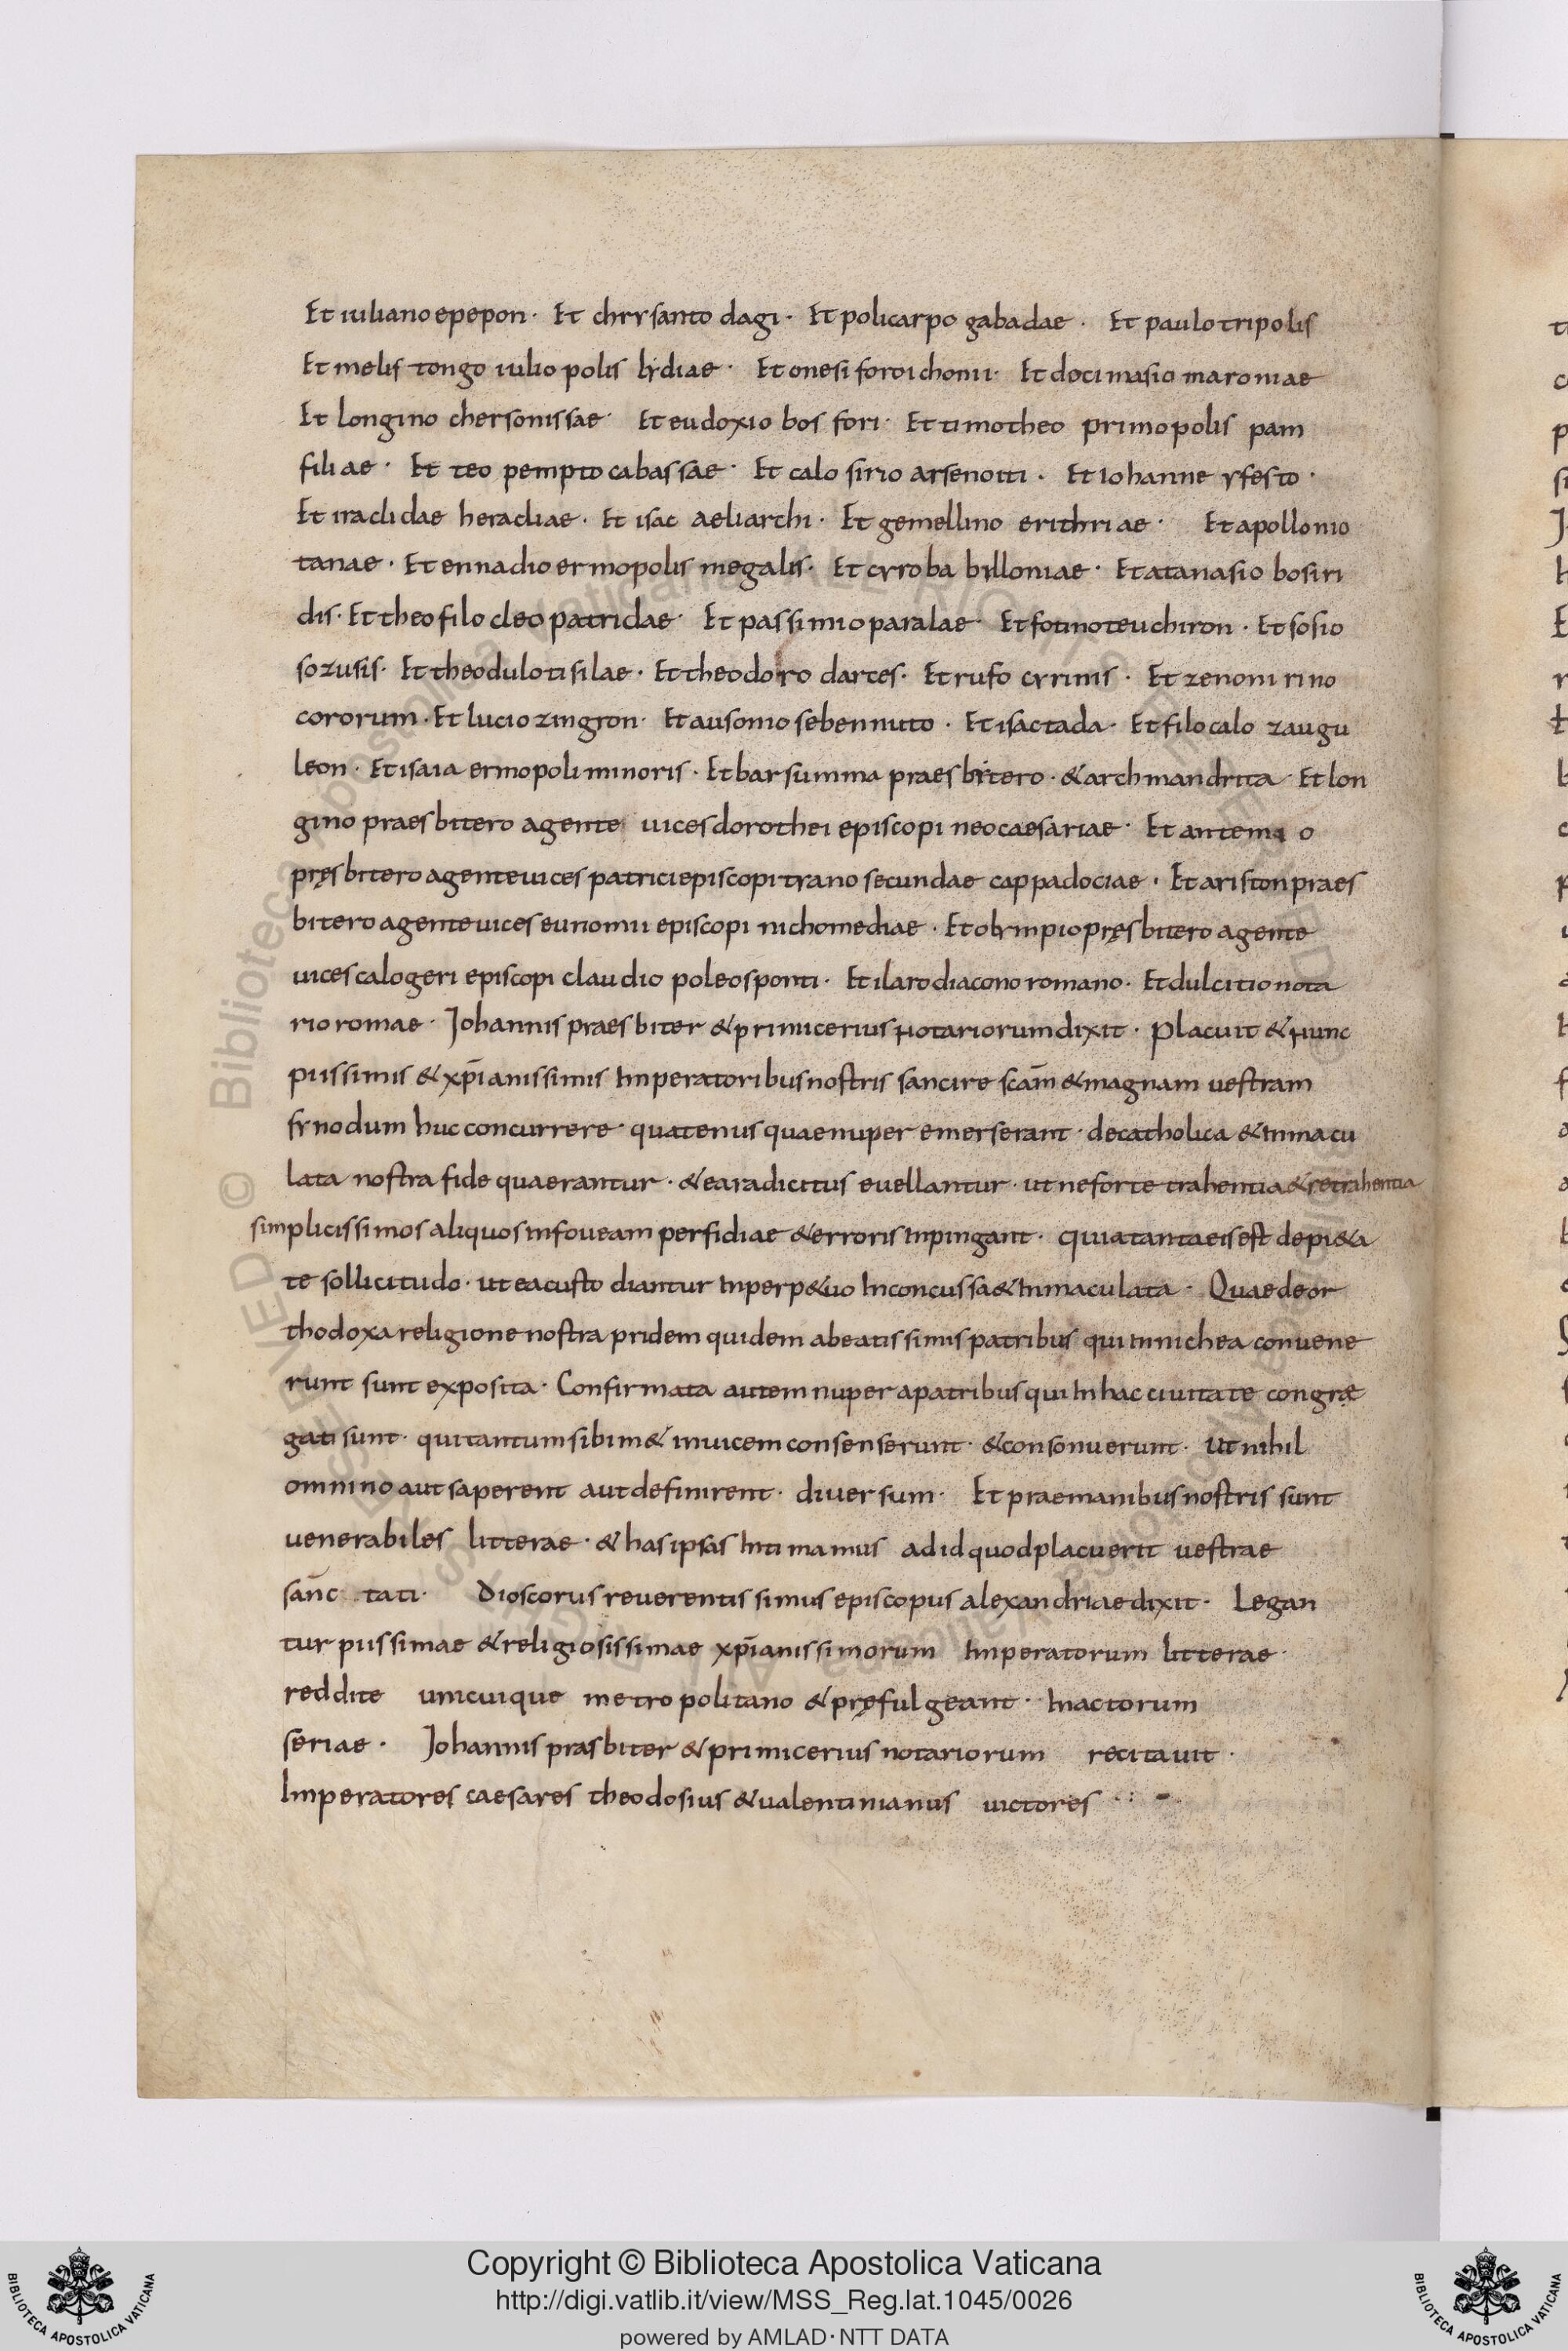 Et iuliano epepon· Et chrysanto dagi· Et policarpo gabadae· Et paulo tripolis
Et melis tongo iulio polis lydiae· Et onesi foro ichonii· Et docimasio maroniae
Et longino chersonissae· Et eudoxio bosfori· Et timotheo primopolis pam
filiae· Et teo pempto cabassae· Et calo sirio arsenoiti· Et Iohanne yfesto·
Et iraclidae heracliae· Et isac aeliarchi· Et gemellino erithriae· Et apollonio
tanae· Et ennadio ermopolis megalis· Et cyro ba bylloniae· Et atanasio bosiri
dis· Et theofilo cleo patridae· Et passimio paralae· Et fotino teuchiron· Et sosio
sozusis· Et theodulo tisilae· Et theodoro dartes· Et rufo cyrinis· Et zenoni rino
cororum· Et lucio zingron· Et ausonio sebennuto· Et isac tada· Et filocalo zaugu
leon· Et isaia ermopoli minoris· Et barsumma praesbitero· & archmandrita Et lon
gino praesbitero agente uices dorothei episcopi neocaesariae· Et antemi o
pręsbitero agente uices patrici episcopi tyano secundae cappadociae· Et ariston praes
bitero agente uices eunomii episcopi nichomediae· Et olympio pręsbitero agente
uices calogeri episcopi claudio poleosponti· Et ilaro diacono romano· Et dulcitio nota
rio romae· Johannis praesbiter & primicerius Notariorum dixit· placuit & Nunc
piissimis & xp̄ianissimis Imperatoribus nostris sancire scām & magnam uestram
synodum huc concurrere· quatenus quae nuper emerserant· de catholica & Inmacu
lata nostra fide quaerantur· & ea radicitus euellantur· ut ne forte trahentia & retrahentia
simplicissimos aliquos Infoueam perfidiae & erroris Inpingant· quia tanta eis est de pi&a
te sollicitudo· ut ea custodiantur Inperp&uo Inconcussa & Inmaculata· Quae de or
thodoxa religione nostra pridem quidem a beatissimis patribus qui In nichea conuene
runt sunt exposita· Confirmata autem nuper a patribus qui In hac ciuitate congrę
gati sunt· qui tantum sibim& inuicem consenserunt· & consonuerunt· ut nihil
omnino aut saperent aut definirent· diuersum· Et prae manibus nostris sunt
uenerabiles litterae· & has ipsas Intimamus ad id quod placuerit uestrae
sānc tati· Dioscorus reuerentissimus episcopus alexandriae dixit· Legan
tur piissimae & religiosissimae xp̄ianissimorum Imperatorum litterae·
reddite unicuique metropolitano & pręfulgeant· In actorum
seriae· Johannis prasbiter & primicerius notariorum recitauit·
Imperatores caesares theodosius & ualentinianus uictores
Copyright © Biblioteca Apostolica Vaticana
http://digi.vatlib.it/view/MSS_Reg.lat.1045/0026
powered by AMLAD·NTT DATA
BIBLIOTECA APOSTOLICA VATICANA
BIBLIOTECA APOSTOLICA VATICANA